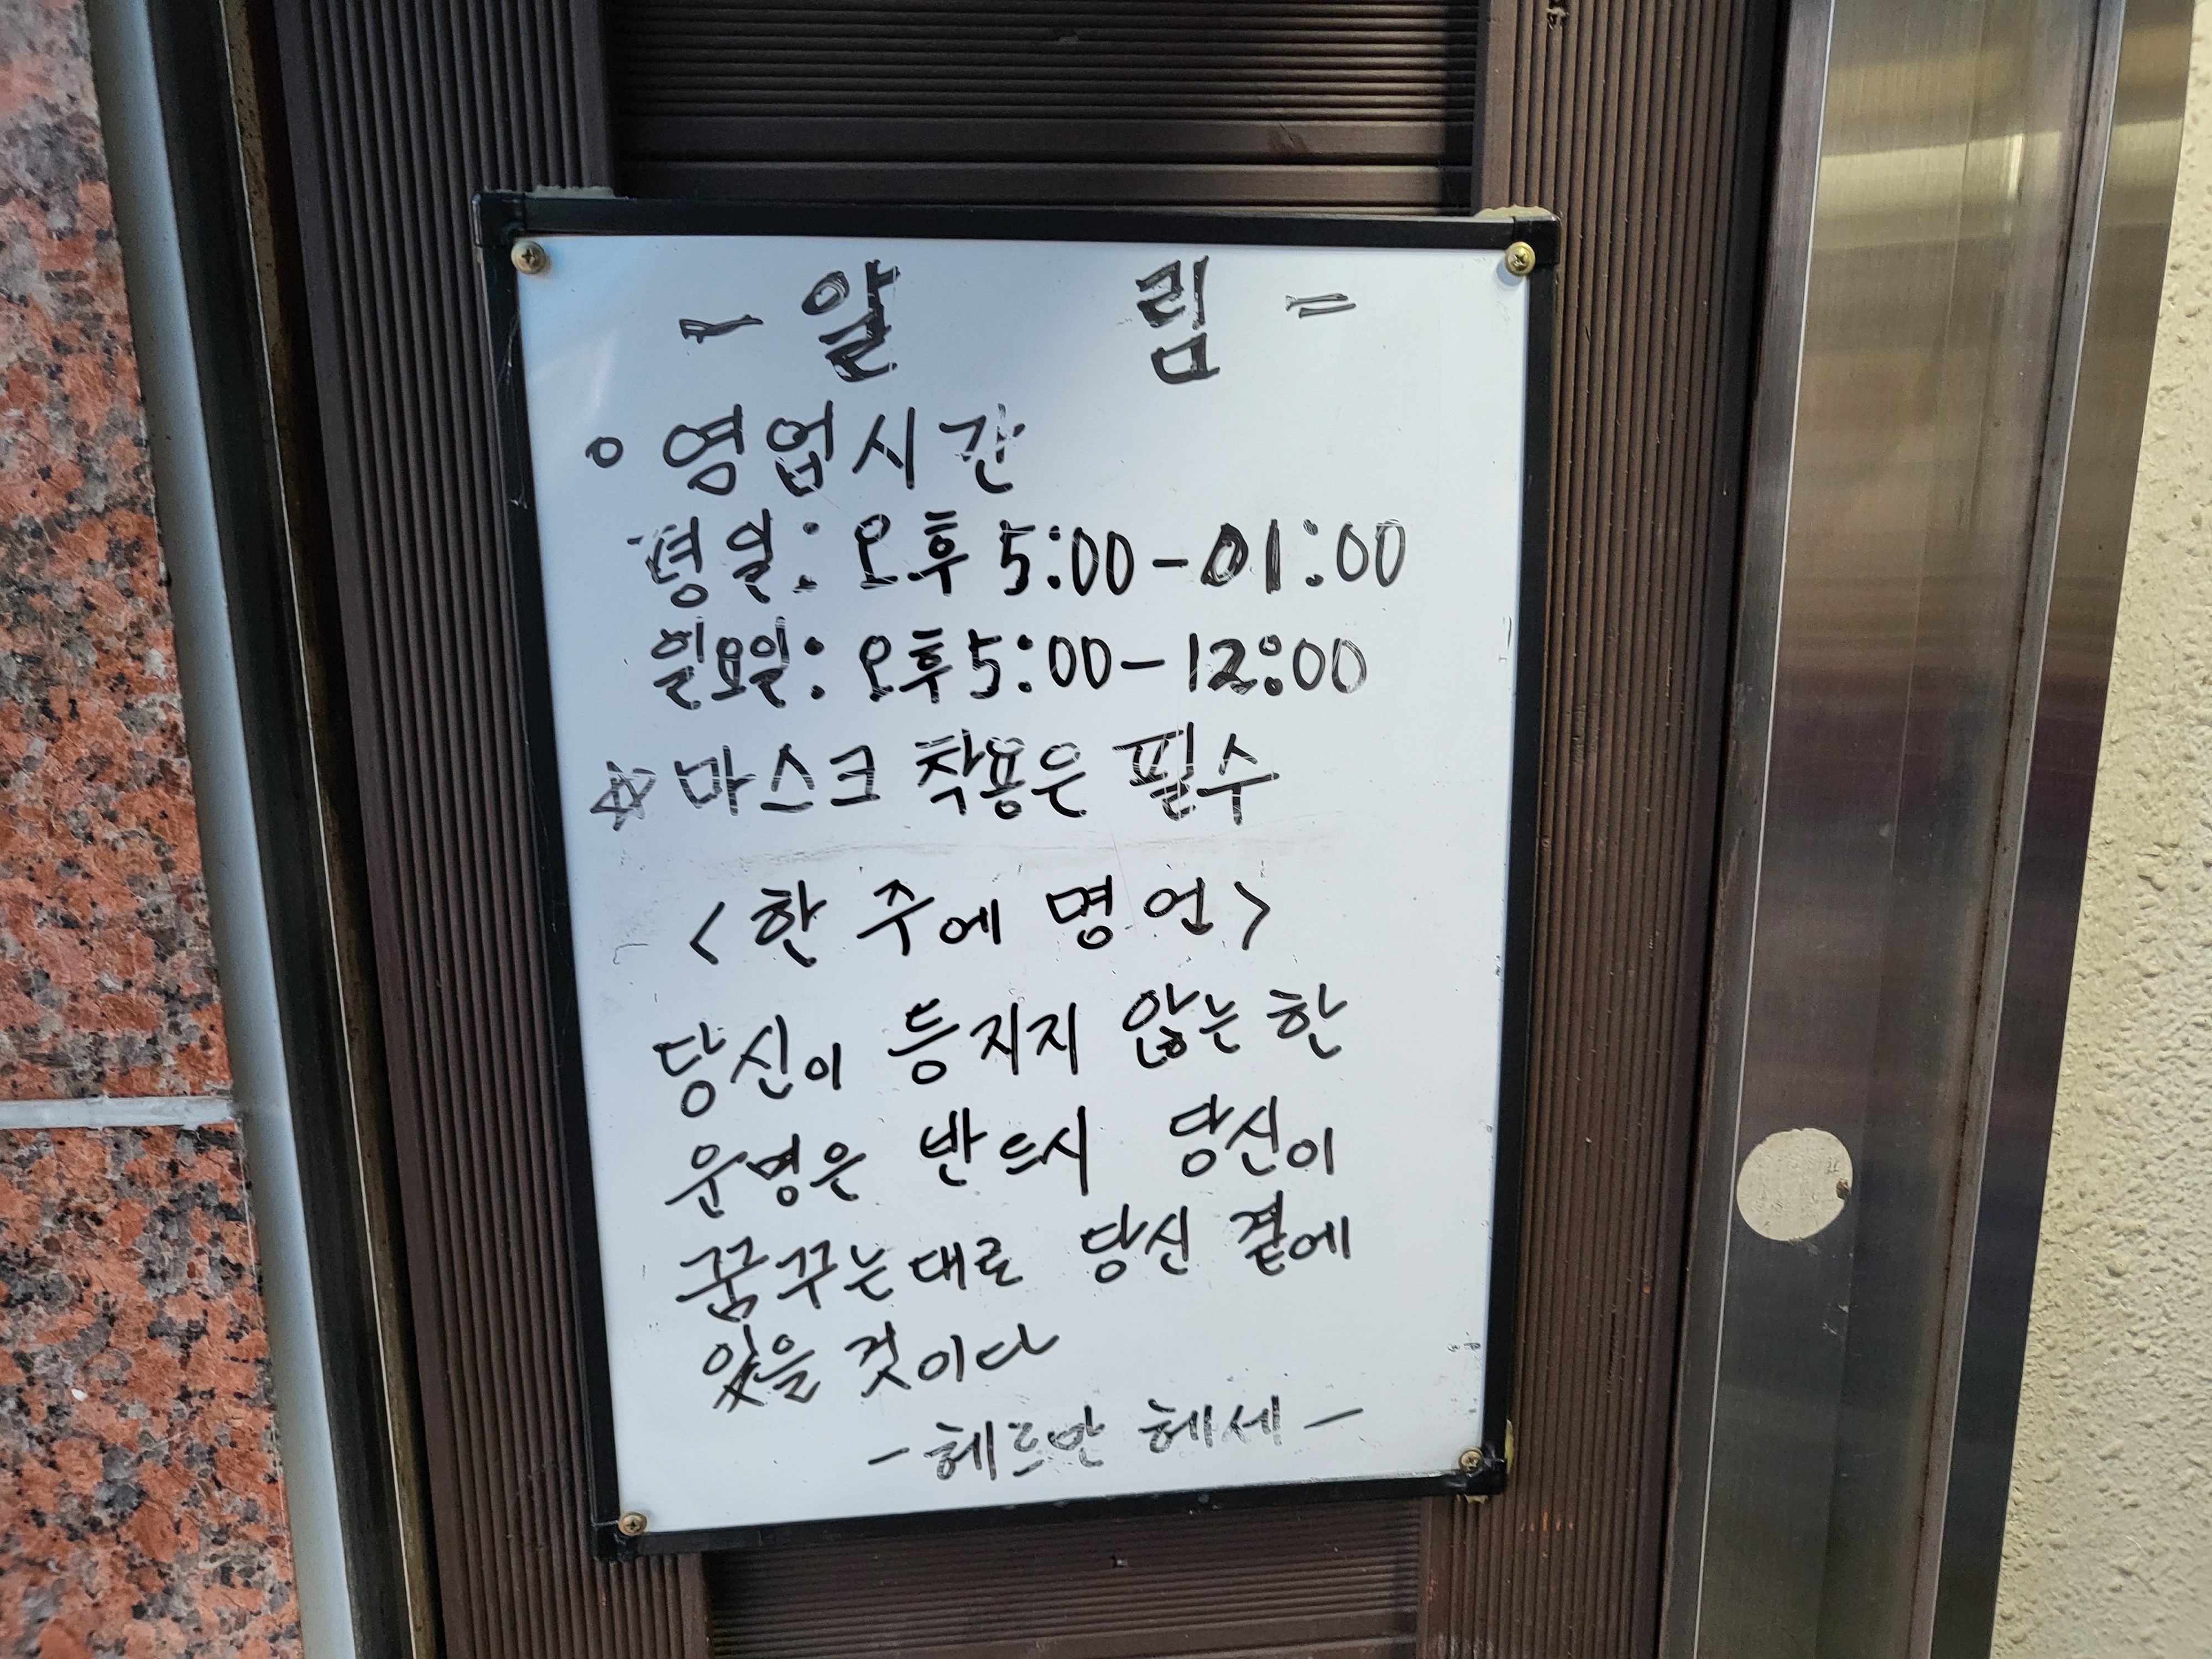 - 알 림 =
o 영업시간
평일: 오후 5:00-01:00
일요일: 오후5:00-12:00
☆ 마스크 착용은 필수
<한 주에 명언>
당신이 등지지 않는 한
운명은 반드시 당신이
꿈꾸는대로 당신 곁에
있을 것이다
- 헤르만 헤세 -